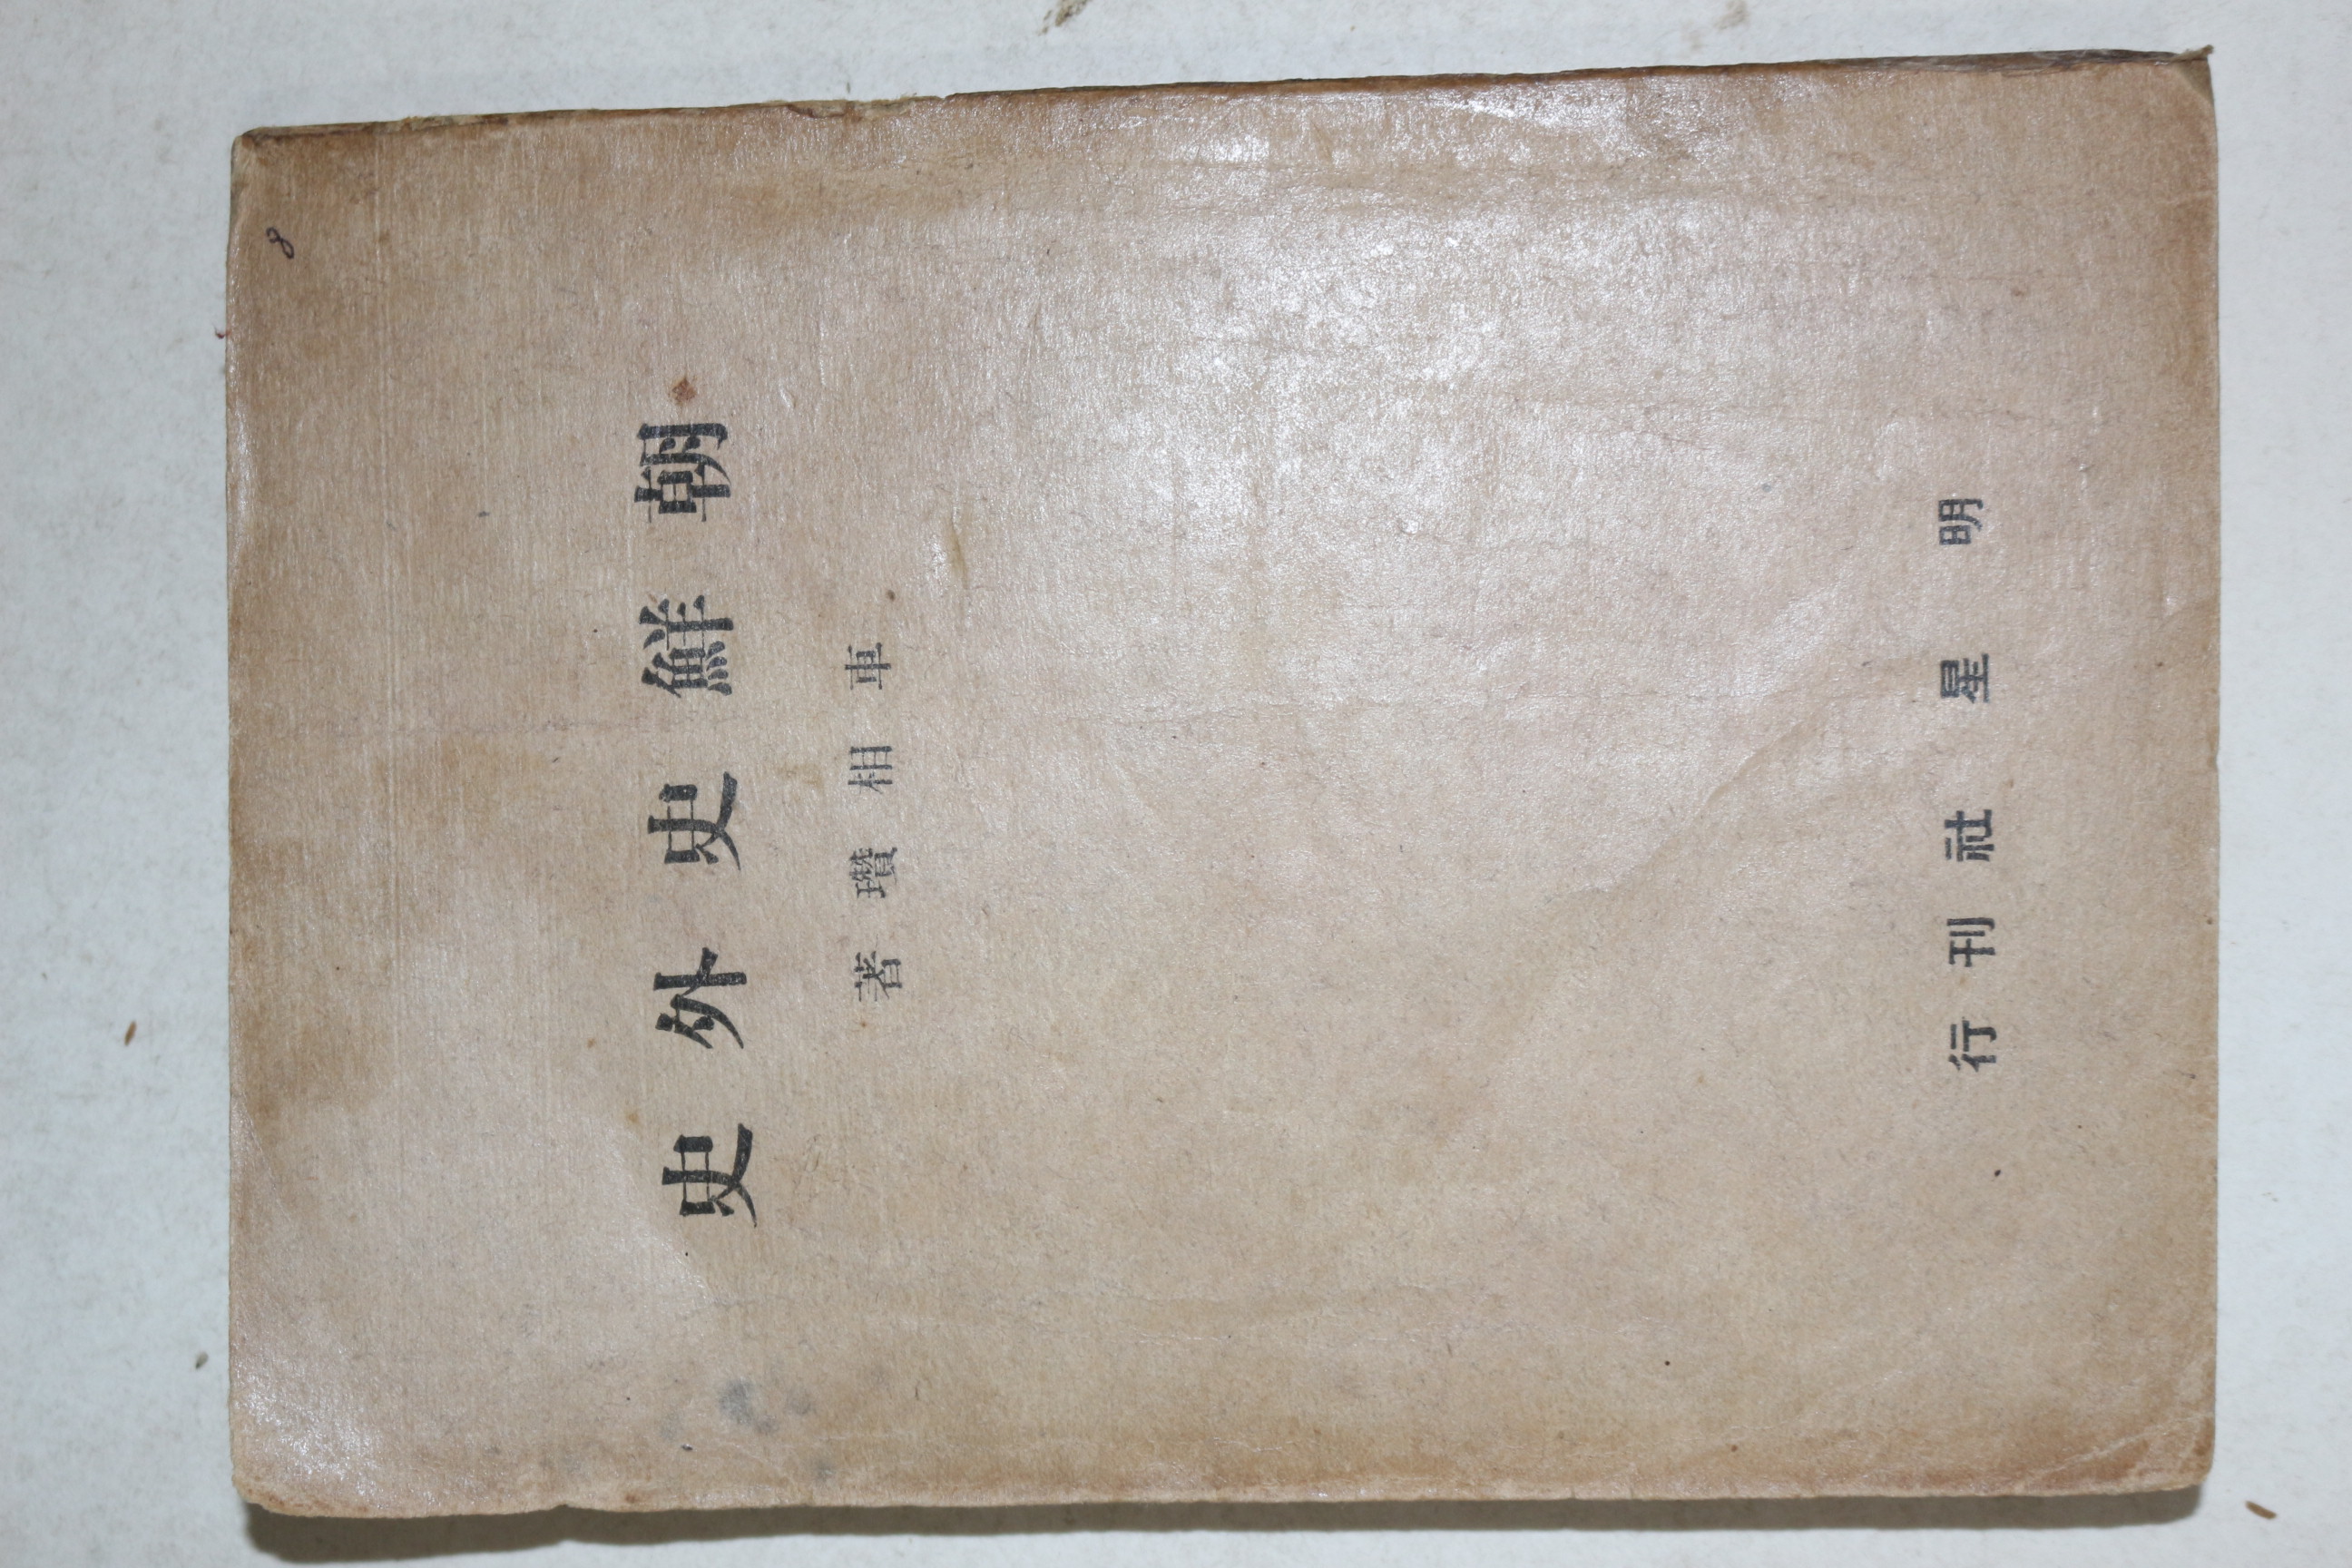 8
朝鮮史外史
車相瓚著
明星社刊行